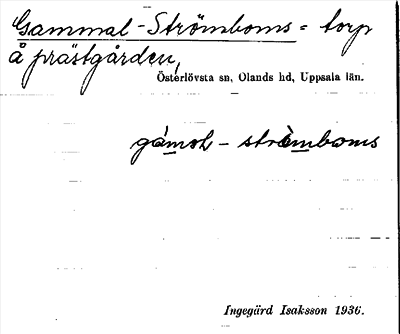 Gammal-Strömboms = torp
å prästgården,
Österlövsta sn, Olands hd, Uppsala län.
gámol - strö̀mboms
Ingegärd Isaksson 1936.